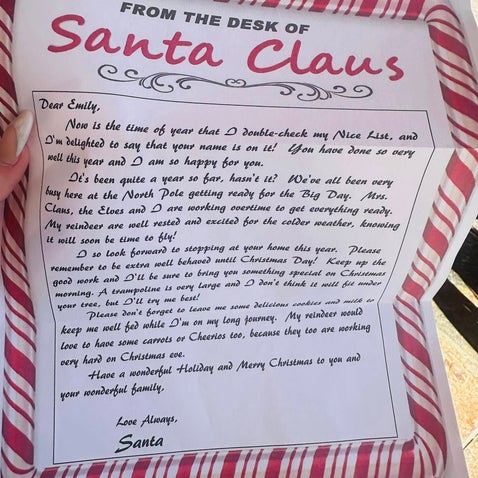 FROM THE DESK OF
Santa Claus
Dear Emily,
Now is the time of year that I double-check my Nice List, and
I'm delighted to say that your name is on it! You have done so very
well this year and I am so happy for you.
It's been quite a year so far, hasn't it? We've all been very
busy here at the North Pole getting ready for the Big Day. Mrs.
Claus, the Elves and I are working overtime to get everything ready.
My reindeer are well rested and excited for the colder weather, knowing
it will soon be time to fly!
I so look forward to stopping at your home this year. Please
remember to be extra well behaved until Christmas Day! Keep up the
good work and I'll be sure to bring you something special on Christmas
morning. A trampoline is very large and I don't think it will fit under
your tree, but I'll try me best!
Please don't forget to leave me some delicious cookies and milk to
keep me well fed while I'm on my long journey. My reindeer would
love to have some carrots or Cheerios too, because they too are working
very hard on Christmas eve.
Have a wonderful Holiday and Merry Christmas to you and
your wonderful family,
Love Always,
Santa